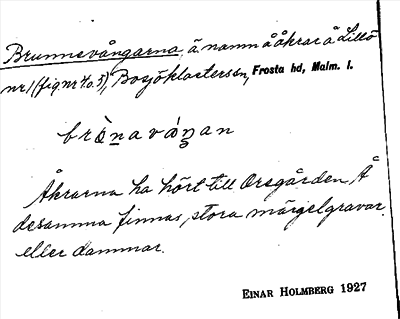 Brunnsvångarna, ä. namn å åkrar å Lillö
nr 1 (fig nr 4 o. 5), Bosjöklosters sn, Frosta hd, Malm. l.
brὰnavάŋan
Åkrarna ha hört till Orsgården. Å
desamma finnas stora märgelgravar
eller dammar.
EINAR HOLMBERG 1927